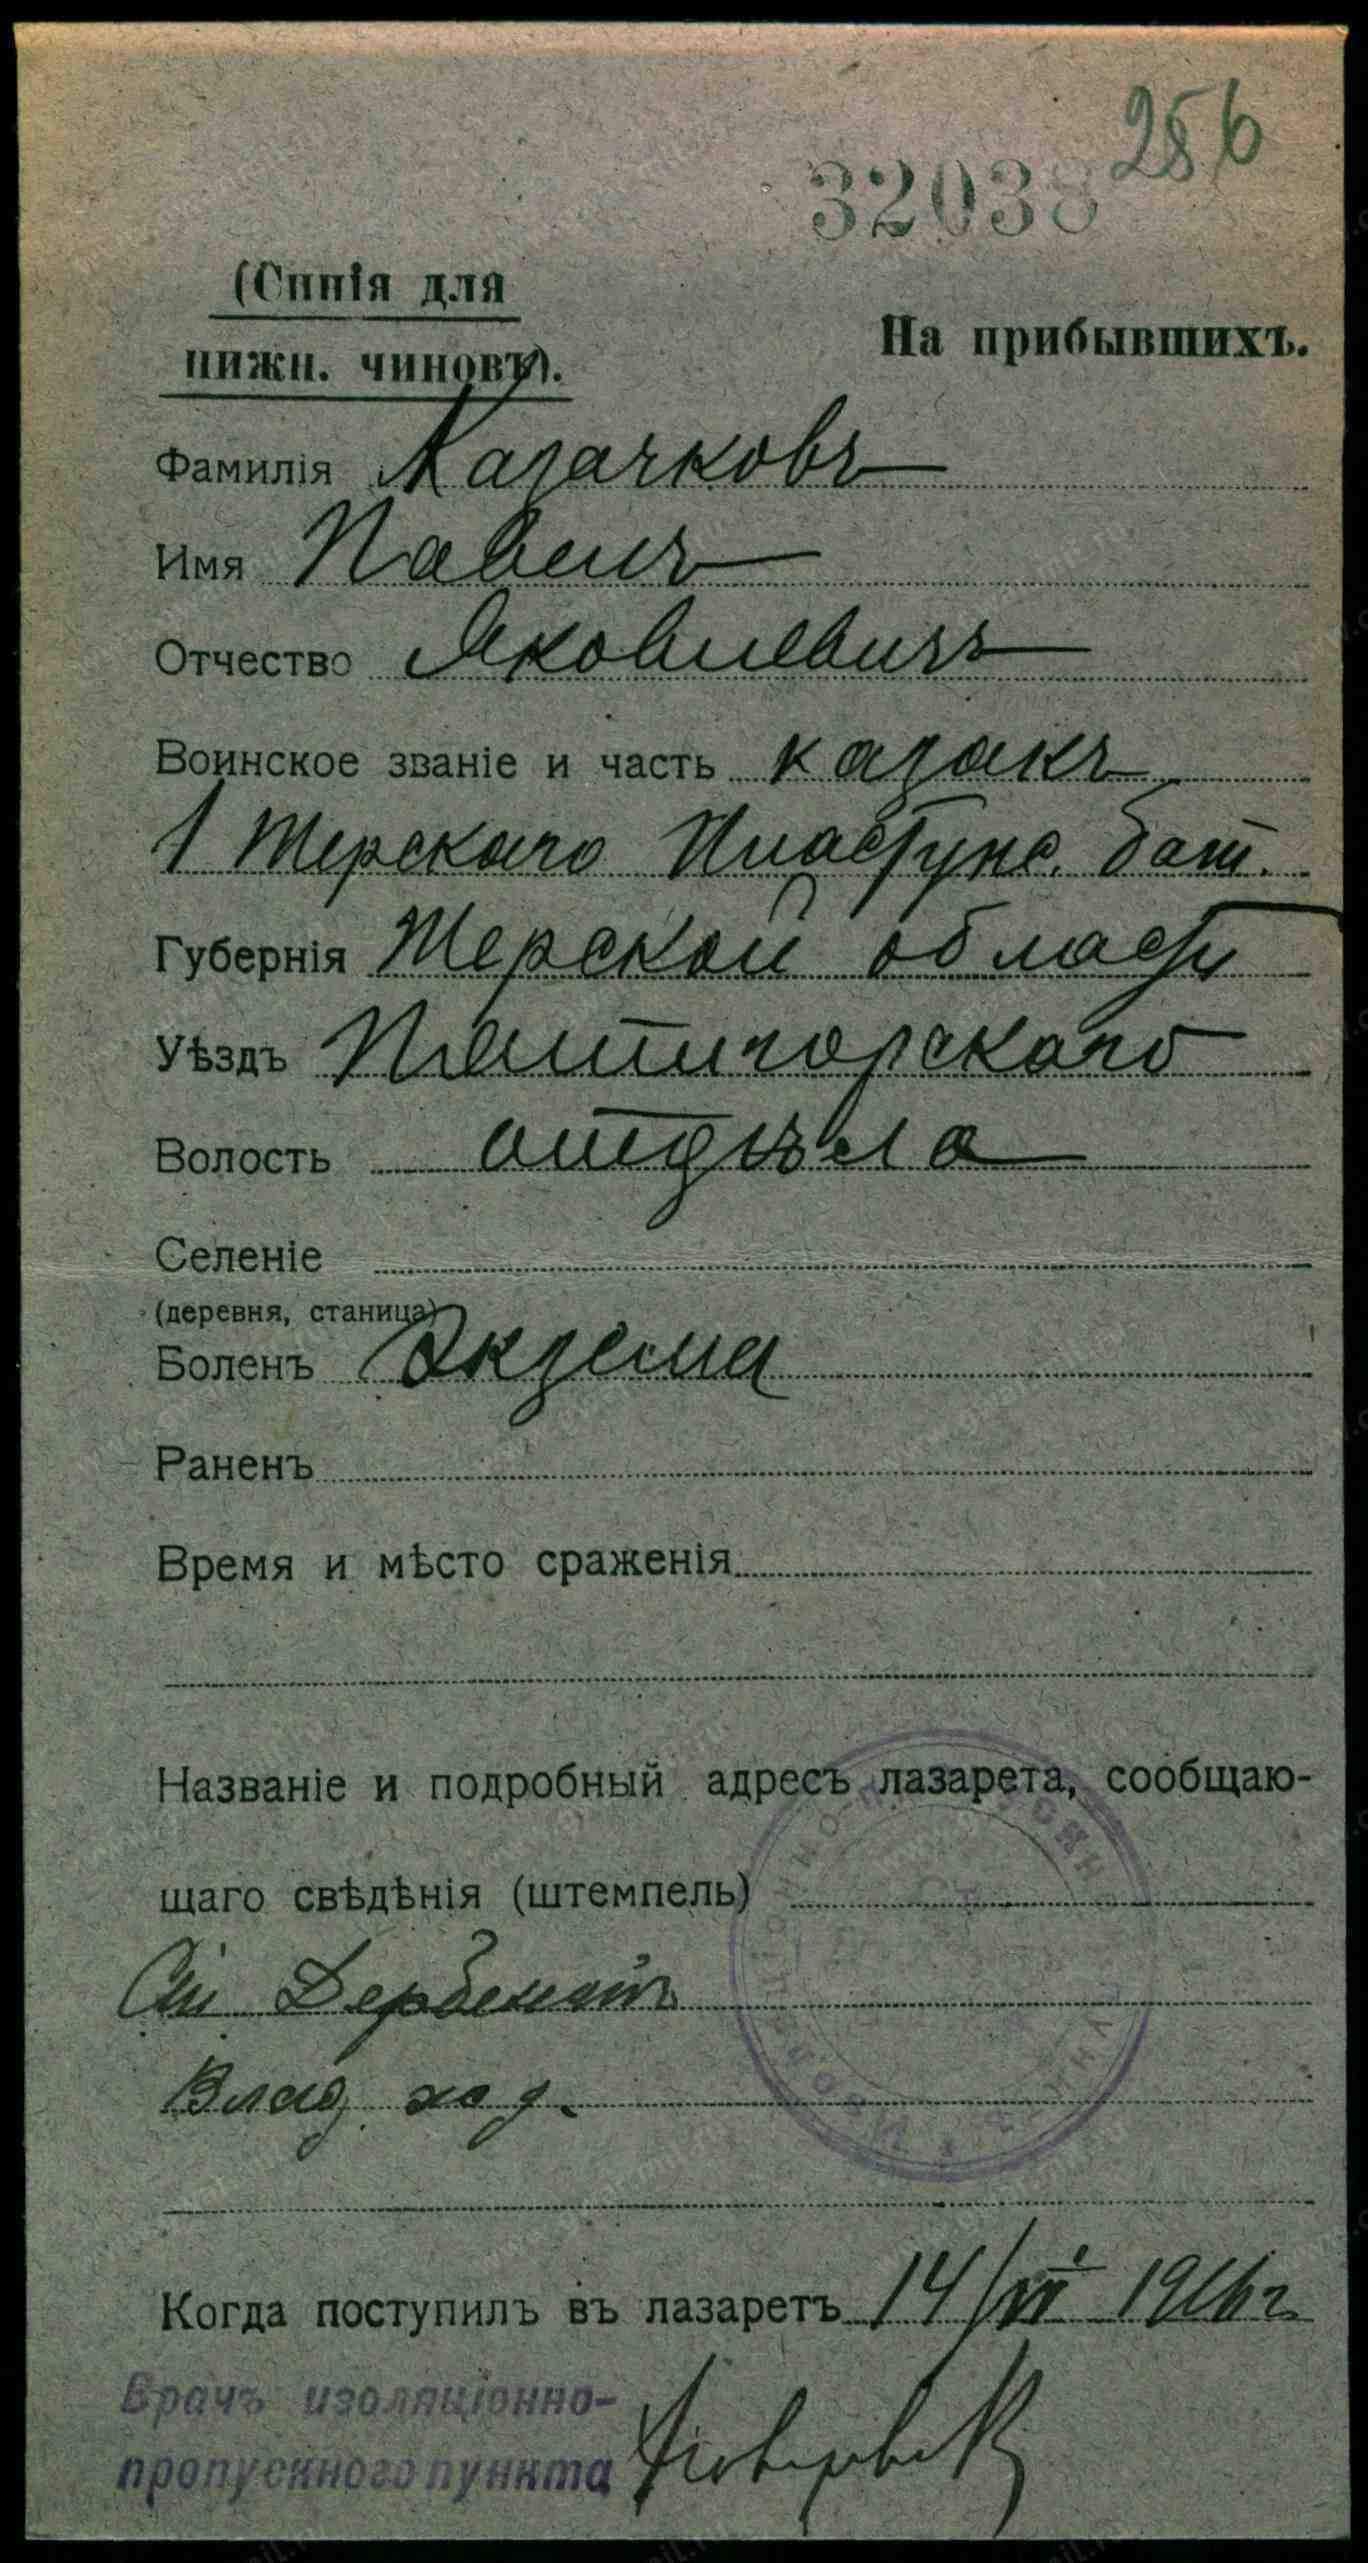 256
32038
(Синія для
нижн. чиновъ).
На прибывшихъ.
Фамилія Казачковъ
Имя Павелъ
Отчество Яковлевичъ
Воинское званіе и часть казакъ
1 Терскаго Пластунс. бат.
Губернія Терской области
Уѣздъ Пятигорскаго
Волость отдѣла
Селеніе
(деревня, станица)
Боленъ Экзема
Раненъ
Время и мѣсто сраженія
Названіе и подробный адресъ лазарета, сообщаю-
щаго свѣдѣнія (штемпель)
Ст. Дербентъ
Влад. ж. д.
Когда поступилъ въ лазаретъ 14/VI 1916 г.
Врачъ изоляціонно-
пропускного пункта